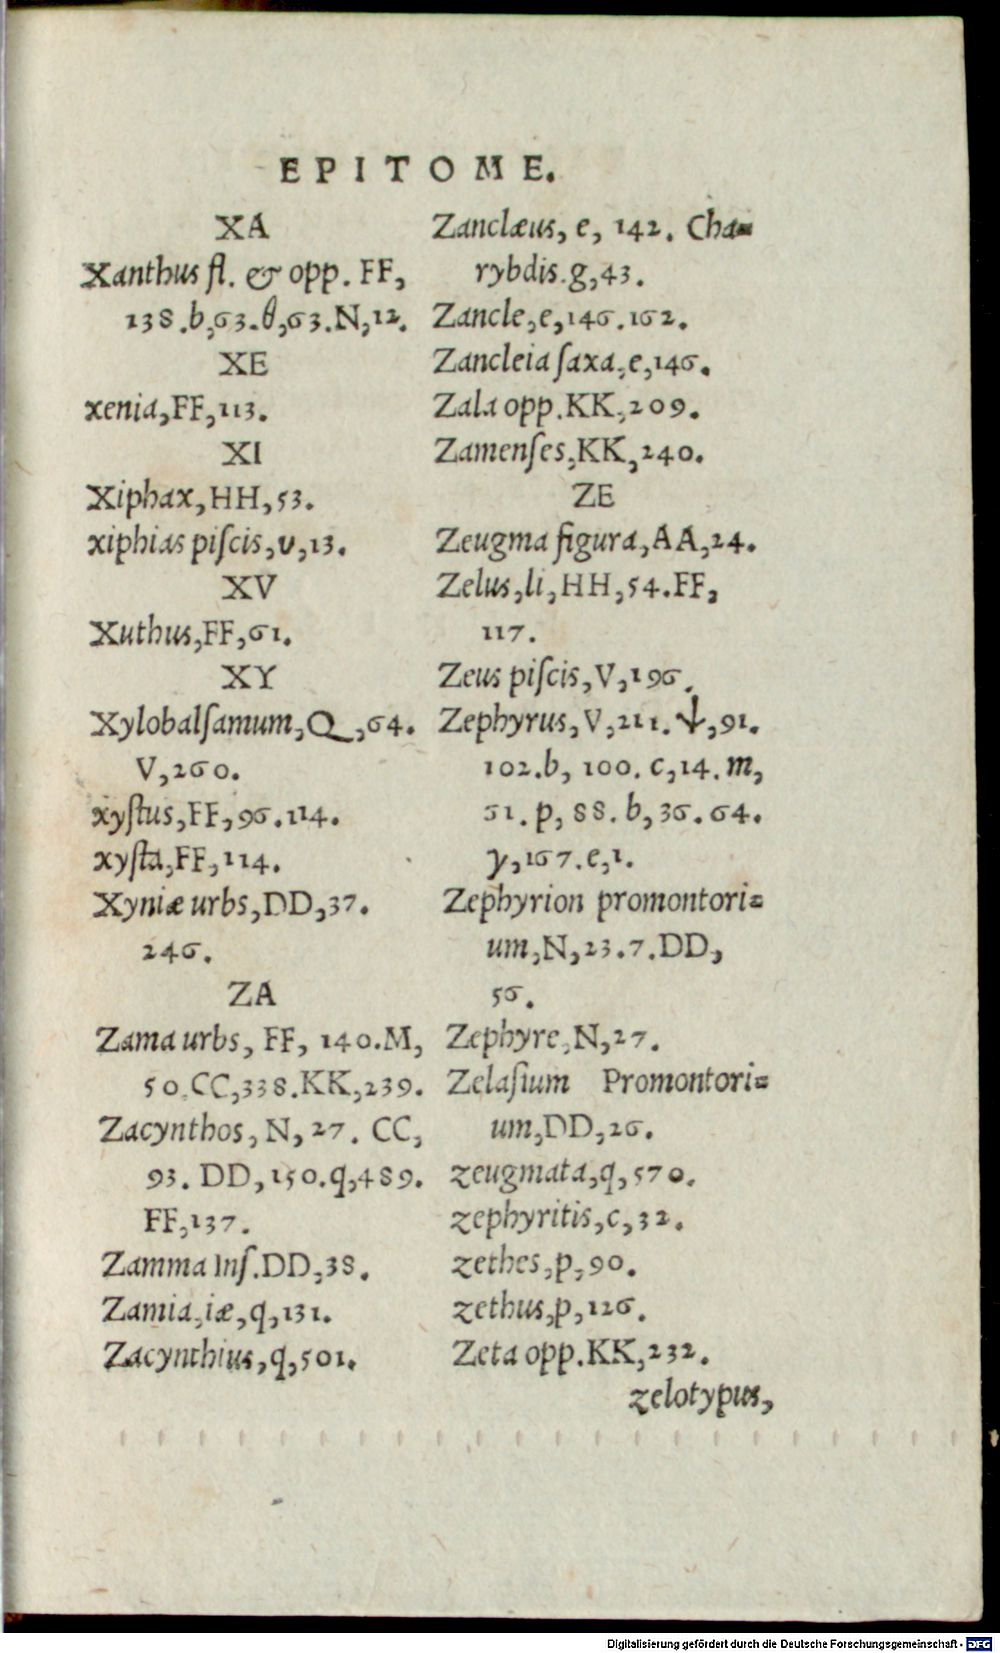 EPITOME.
XA
Xanthus fl. & opp. FF,
138.b,63.θ,63.N,12.
XE
xenia,FF,113.
XI
Xiphax,HH,53.
xiphias piſcis,υ,13.
XV
Xuthus,FF,61.
XY
Xylobalſamum,Q,64.
V,260.
xyſtus,FF,96.114.
xyſta,FF,114.
Xyniæ urbs,DD,37.
246.
ZA
Zama urbs, FF, 140.M,
50.CC,338.KK,239.
Zacynthos, N, 27. CC,
93. DD,150.q,489.
FF,137.
Zamma Inſ.DD,38.
Zamia,iæ,q,131.
Zacynthius,q,501.
Zanclæus, e, 142. Cha=
rybdis.g,43.
Zancle,e,146.162.
Zancleia ſaxa,e,146.
Zala opp.KK,209.
Zamenſes,KK,240.
ZE
Zeugma figura,AA,24.
Zelus,li,HH,54.FF,
117.
Zeus piſcis,V,196.
Zephyrus,V,211.ψ,91.
102.b, 100. c,14. m,
51. p, 88. b,36.64.
γ,167.e,1.
Zephyrion promontori=
um,N,23.7.DD,
56.
Zephyre,N,27.
Zelaſium Promontori=
um,DD,26.
zeugmata,q,570.
zephyritis,c,32.
zethes,p,90.
zethus,p,126.
Zeta opp.KK,232.
zelotypus,
Digitalisierung gefördert durch die Deutsche Forschungsgemeinschaft - DFG